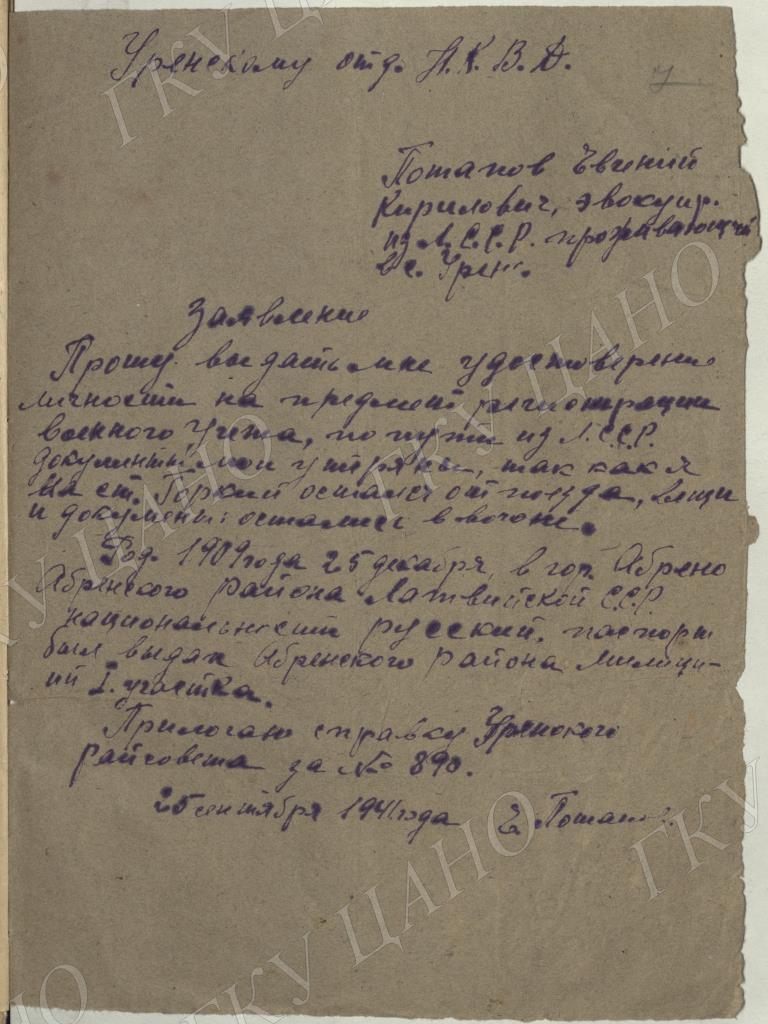 Уренскому отд. Н.К.В.Д.
7
Потапов Евгений
Кирилович, эвокуир.
из Л.С.С.Р. проживающий
в с. Урень.
Заявление
Прошу выдать мне удостоверение
личности на предмет регистрации
военного учета, по пути из Л.С.С.Р.
документы мои утеряны, так как я
на ст. Горкий остался от поезда, вещи
и документы остались в вогоне.
Род. 1909 года 25 декабря, в гор. Абрено
Абренского района Латвийской С.С.Р.
национальности русский. паспорт
был выдан Абренского района милици-
ий I. участка.
Прилогаю справку Уренского
райсовета за № 890.
25 сентября 1941 года Е. Потапов.
ГКУ ЦАНО